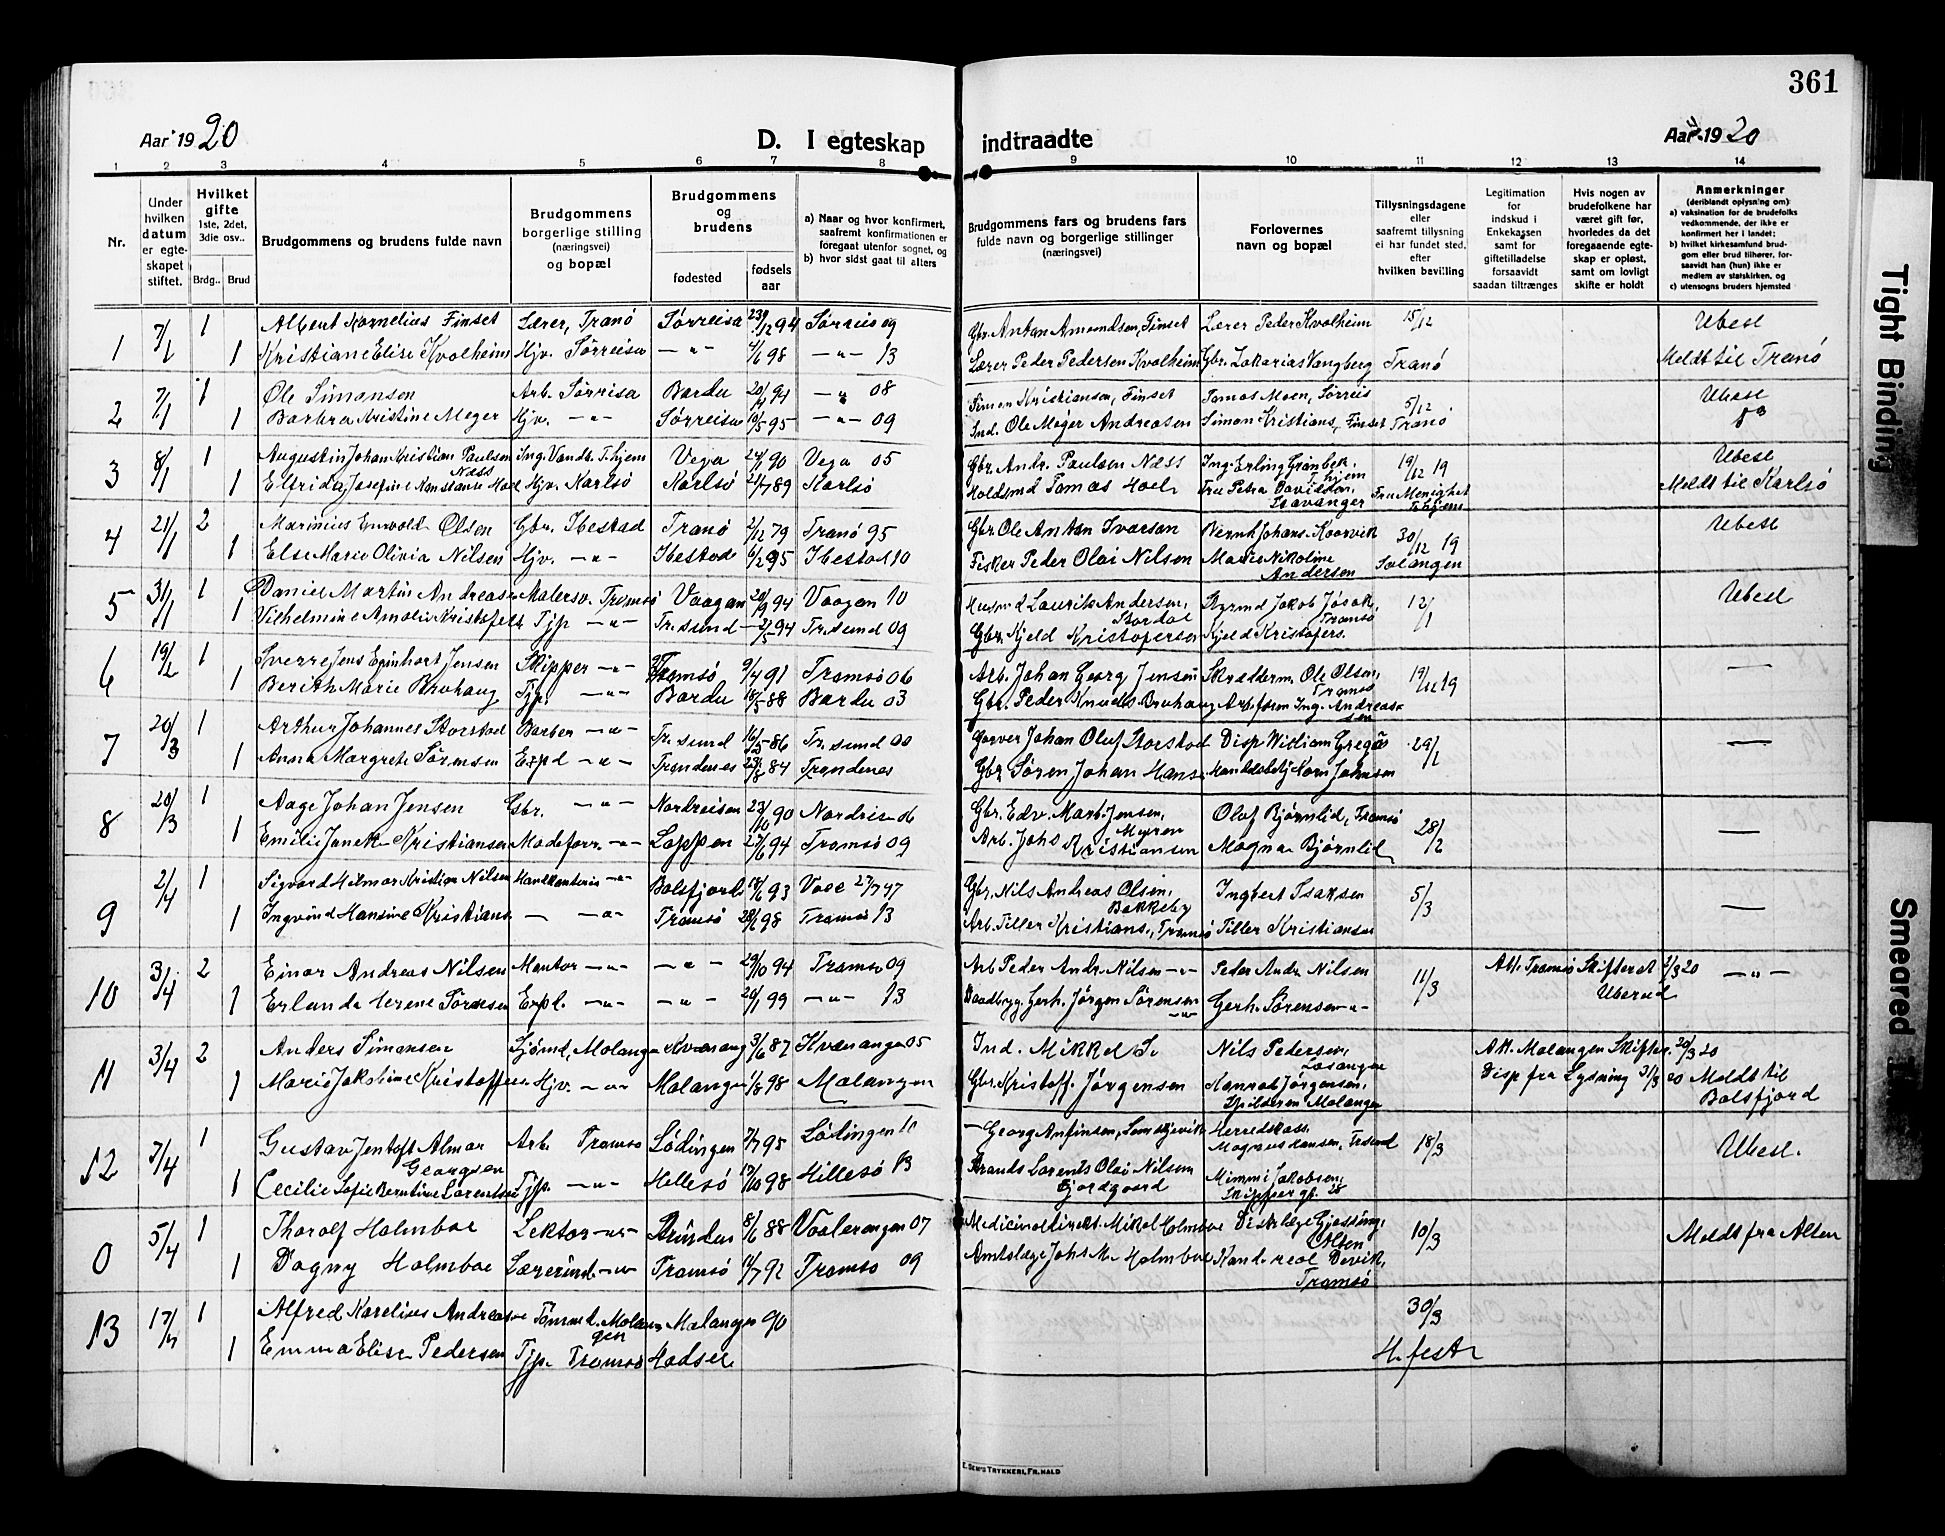 361
Aar 1920
D. I egteskap indtraadte
Aar 1920
1 2 3 4 5 6 7 8 9 10 11 12 13 14
Nr.
Under hvilken datum er egte-skapet stiftet.
Hvilket gifte 1ste, 2det, 3die osv..
Brdg.. Brud
Brudgommens og brudens fulde navn
Brudgommens borgerlige stilling (næringsvei) og bopæl
Brudgommens og brudens
fødested
fødsels aar
a) Naar og hvor konfirmert, saafremt konfirmationen er foregaat utenfor sognet, og
b) hvor sidst gaat til alters
Brudgommens fars og brudens fars fulde navn og borgerlige stillinger (næringsvei)
Forlovernes navn og bopæl
Tillysningsdagene eller saafremt tillysning ei har fundet sted, efter hvilken bevilling
Legitimation for indskud i Enkekassen samt for giftetilladelse forsaavidt saadan tiltrænges
Hvis nogen av brudefolkene har været gift før, hvorledes da det foregaaende egte-skap er opløst, samt om lovligt skifte er holdt
Anmerkninger (deriblandt oplysning om)
a) vaksination for de brudefolks vedkommende, der ikke er konfirmert her i landet;
b) hvilket kirkesamfund brud-gom eller brud tilhører, for-saavidt han (hun) ikke er medlem av statskirken, og
c) utensogns bruders hjemsted
1 7/1 1 Albert Kornelius Finset Lærer, Tranö Sörreisa 94 Sörreis 09 Gbr. Anton Amundsen, Finset Lærer Peder Kvolheim 15/12 Ubesl
1 Kristiane Elise Kvolheim Hjv. Sörreisa —"— 98 —"— 13 Lærer Peder Pedersen Kvolheim Gbr. Zakarias Vangberg Tranö Meldt til Tranö
2 7/1 1 Ole Simonsen Arb. Sörrisa Bardu 94 —"— 08 Simon Kristiansen, Finset Tomas Moen, Sörreis 5/12 Ubesl
1 Barbra Kristine Meger Hjv. —"— Sörreisa 95 —"— 09 Ind. Ole Meger Andreasen Simon Kristians, Finset Tranö
3 8/1 1 Augustin Johan Kristian Paulsen Næss Ing. Vandt. T.hjem Vega 90 Vega 05 Gbr. Andr. Paulsen Næss Ing. Erling Grönbek, T.hjem 19/12 19 Ubesl
1 Elfrida Josefine Konstanse Hoel Hjv. Karlsö Karlsö 89 Karlsö Holdsmd Tomas Hoel Fru Petra Davidsen, Stavanger Fru Menighet T.hjem Meldt til Karlsö
4 21/1 2 Marinius Enevold Olsen Gbr. Ibestad Tranö 2/12 79 Tranö 95 Gbr. Ole Anton Ivarsen Bernh Johans. Koorvik 30/12 19 Ubesl
1 Else Marie Olivia Nilsen Hjv. —"— Ibestad 95 Ibestad 10 Fisker Peder Olai Nilsen Marie Nikoline Andersen Salangen
5 31/1 1 Daniel Martin Andreas Malersv. Tromsö Vaagan 94 Vaagan 10 Husmd Laurits Andersen, Stordal Styrmd Jakob Jösok, Tromsö 12/1 Ubesl
1 Vilhelmine Amalie Kristofels Tjp —"— Tr.sund 94 Tr.sund 09 Gbr. Kjeld Kristofersen Kjeld Kristofers.
6 19/2 1 Sverre Jens Eginhart Jensen Skipper —"— Tromsö 9/4 91 Tromsö 06 Arb. Johan Georg Jensen Skrædderm. Ole Olsen, Tromsö 19/12 19 —
1 Berith Marie Bruhaug Tjp. —"— Bardu 18/5 88 Bardu 03 Gbr. Peder Knuds Bruhaug Arb.form Ing. Andreassen
7 20/3 1 Arthur Johannes Storstad Barber —"— Tr.sund 16/5 86 Tr.sund 00 Garver Johan Oluf Storstad Disp William Gregers 29/2 —
1 Anna Margrete Sörensen Expd —"— Trondenes 84 Trondenes Gbr Sören Johan Hans Handelsbetj Korn Johnsen
8 20/3 1 Aage Johan Jensen Gbr. —"— Nordreisen 23/10 90 Nordreis 06 Gbr. Edv. Mart. Jensen, Myren Olaf Bjørnlid, Tromsö 28/2 —
1 Emilie Janek Kristiansen Modeforr. —"— Loppen 94 Tromsö 09 Arb. Johs Kristiansen Magna Bjørnlid
9 2/4 1 Sigvard Hilmar Kristian Nilsen Havekantoris —"— Balsfjord 93 Gbr. Nils Andreas Olsen, Bakkeby Ingbert Isaksen 5/3 —
1 Ingvind Hansine Kristians. — —"— Tromsö 98 Tromsö 13 Arb. Tiller Kristians., Tromsö Tiller Kristiansen
10 3/4 2 Einar Andreas Nilsen Montør —"— —"— 29/10 94 Tromsö 09 Arb Peder Andr. Nilsen —"— Peder Andr. Nilsen 11/3 Att. Tromsö Skifteret 2/3 20 —"—
1 Erlanda Herene Sörensen Expl. —"— —"— 20/1 99 —"— 13 Baadbyg. Gerh. Jörgen Sörensen —"— Gerh. Sörensen —"— Uberud
11 3/4 2 Anders Simonsen Sjömd, Malangen Kvænang 3/6 87 Kvænangen 05 Ind. Mikkel S. Nils Pedersen, Lavangen Att. Malangen Skifter. 20/3 20
1 Marie Jakobine Kristoffersen Hjv. —"— Malangen 1/8 98 Malangen Gbr. Kristoff. Jörgensen Konrad Jörgensen, Spilderen Malangen Disp fra Lysning 31/3 20 Meldt til Balsfjord
12 7/4 1 Gustav Jentoft Almar Georgsen Arb. Tromsö Lödingen 7/7 95 Lödingen 11 — Georg Anfinsen, Herredskass. Magnus Hansen, Tr.sund 18/3 Ubesl.
1 Cecilie Sofie Berntine Lorentsen Tjp. —"— Hillesö 17/10 98 Hillesö 13 Strands Lorents Olai Nilsen Fjordgaard Mimmi Jakobsen, Skippergt. 28
0 5/4 1 Thorolf Holmboe Lektor —"— 8/6 88 Vaalerengen 07 Medicinaldirekt. Mikal Holmboe Distrlæge Gjessing, Alten 10/3 Meldt fra Alten
1 Dagny Holmboe Lærerind. —"— Tromsö 11/7 92 Tromsö 09 Amtslæge Johs M. Holmboe Kand. real Devik, Tromsö
13 17/4 1 Alfred Karelius Andreas Tömmd. Malangen Malangen 90 30/3
1 Emma Elise Pedersen Tjp. Tromsö Hadsel H. fest
E. Sem's Trykkeri, Fr.hald
Tight Binding
Smeared